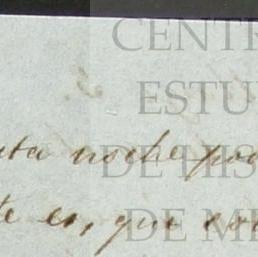 CENTR
ESTU
DE HIS
DE ME
sta noche po
te es, que co